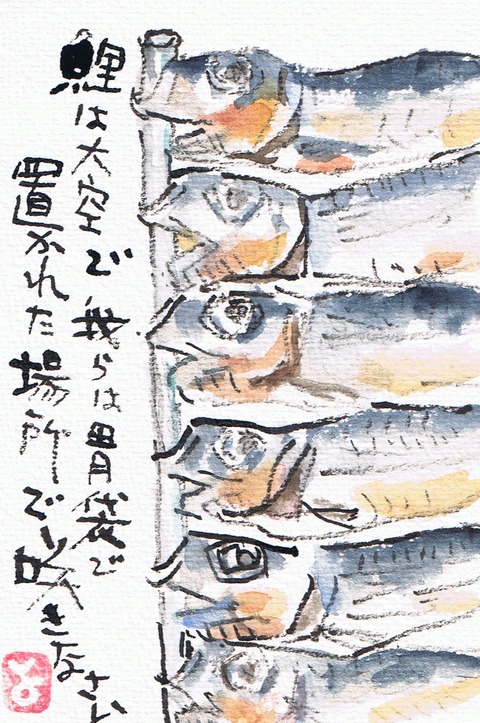 鯉は大空で、我らは胃袋で
置かれた場所で咲きなさい